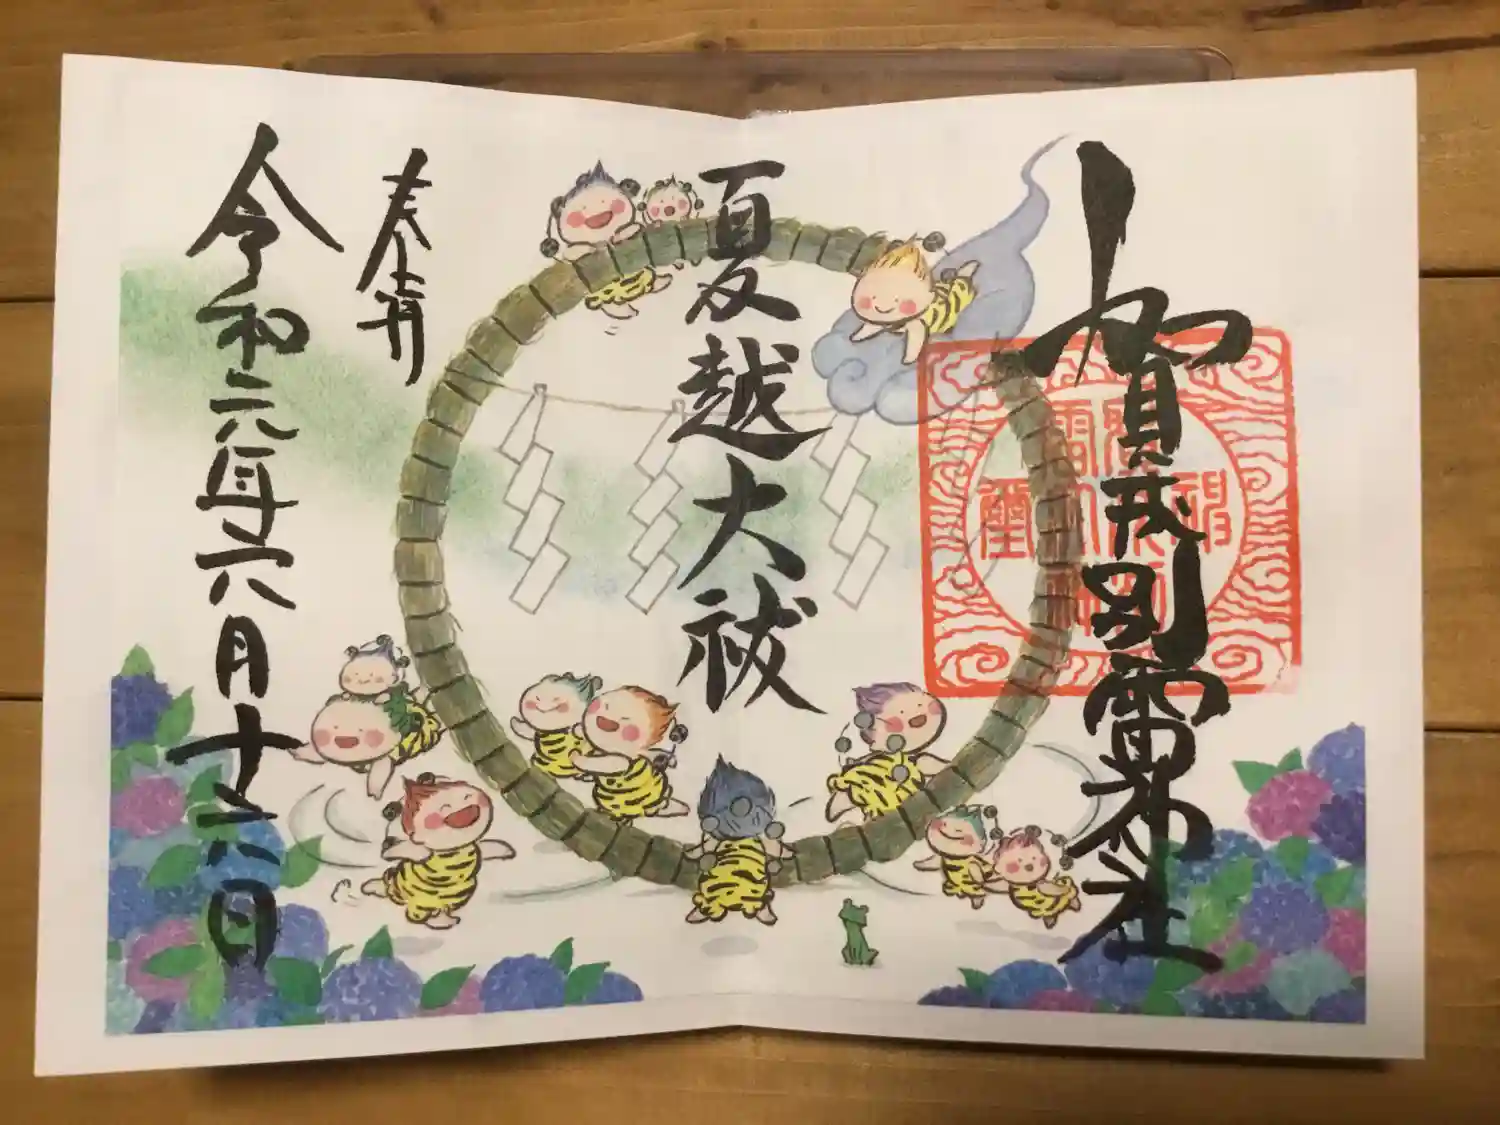 賀茂別雷神社
夏越大祓
奉拝
令和六年六月十六日